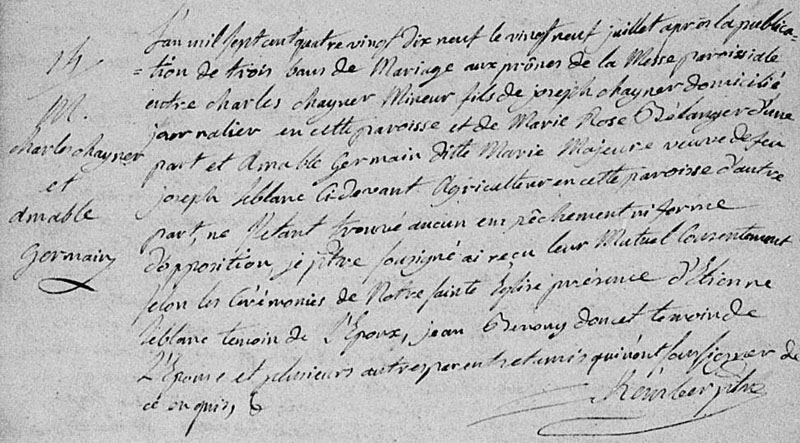 14
M.
charles chayner
et
amable
Germain
L'an mil sept cent quatre vingt dix neuf le vingt neuf juillet après la publica-
-tion de trois bans de Mariage aux prônes de la Messe paroissiale
entre charles chayner Mineur fils de joseph chayner domicilié
journalier en cette paroisse et de Marie Rose Bélanger d'une
part et Amable Germain ditte Marie Majeure veuve de feu
joseph leblanc Ci-devant Agriculteur en cette paroisse d'autre
part, ne s'etant trouvé aucun empêchement ni forme
d'opposition, je ptre soussigné ai reçu leur Mutuel Consentement
selon les Cérémonies de Notre sainte Eglise présence d'Etienne
leblanc temoin de l'Epoux, jean doucet temoin de
l'Epouse et plusieurs autres parents et amis qui n'ont sçu signer de
ce enquis,
ptre